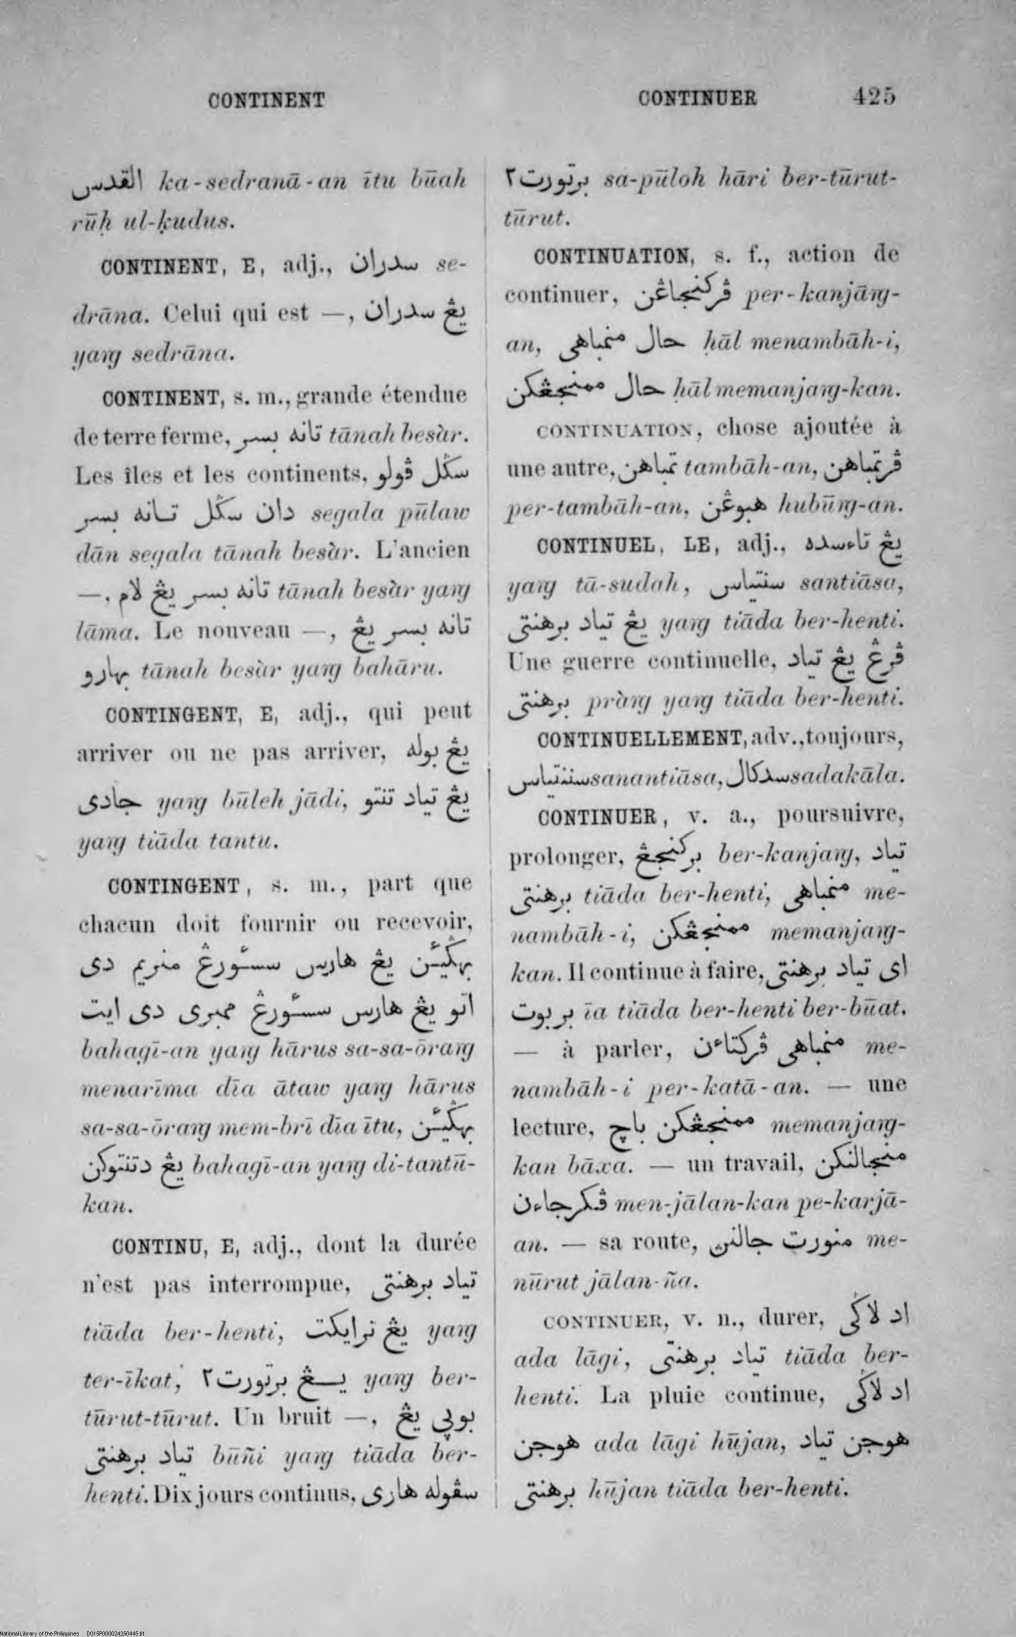 CONTINENT
CONTINUER 425
القدس ka-sedranā-an ītu būah
rūḥ ul-ḳudus.
CONTINENT, E, adj., سدران se-
drāna. Celui qui est —, يڠ سدران
yaṉg sedrāna.
CONTINENT, s. m., grande étendue
de terre ferme, تانه بسر tānah besàr.
Les îles et les continents, سڬل ڤولو
دان سڬل تانه بسر segala pūlaw
dān segala tānah besàr. L'ancien
—, تانه بسر يڠ لام tānah besàr yaṉg
lāma. Le nouveau —, تانه بسر يڠ
بهارو tānah besàr yaṉg bahāru.
CONTINGENT, E, adj., qui peut
arriver ou ne pas arriver, يڠ بوله
جادى yaṉg būleh jādi, يڠ تياد تنتو
yaṉg tiāda tantu.
CONTINGENT, s. m., part que
chacun doit fournir ou recevoir,
بهڬيئن يڠ هارس سسئورڠ منريم دى
اتو يڠ هارس سسئورڠ ممبرى دى ايت
bahagī-an yaṉg hārus sa-sa-ōraṉg
menarīma dīa ātaw yaṉg hārus
sa-sa-ōraṉg mem-brī dīa ītu, بهڬيئن
يڠ دتنتوكن bahagī-an yaṉg di-tantū-
kan.
CONTINU, E, adj., dont la durée
n'est pas interrompue, تياد برهنتى
tiāda ber-henti, يڠ ترايكت yaṉg
ter-īkat, يڠ برتورت٢ yaṉg ber-
tūrut-tūrut. Un bruit —, بوڽي يڠ
تياد برهنتى būñi yaṉg tiāda ber-
henti. Dix jours continus, سڤوله هارى
برتورت٢ sa-pūloh hāri ber-tūrut-
tūrut.
CONTINUATION, s. f., action de
continuer, ڤركنجاڠن per-kanjāṉg-
an, حال منمباهى ḥāl menambāh-i,
حال ممنجڠكن ḥāl memanjaṉg-kan.
CONTINUATION, chose ajoutée à
une autre, تمباهن tambāh-an, ڤرتمباهن
per-tambāh-an, هبوڠن hubūṉg-an.
CONTINUEL, LE, adj., يڠ تاءسده
yaṉg tā-sudah, سنتياس santiāsa,
يڠ تياد برهنتى yaṉg tiāda ber-henti.
Une guerre continuelle, ڤرڠ يڠ تياد
برهنتى pràṉg yaṉg tiāda ber-henti.
CONTINUELLEMENT, adv., toujours,
سننتياس sanantiāsa, سدكال sadakāla.
CONTINUER, v. a., poursuivre,
prolonger, بركنجڠ ber-kanjaṉg, تياد
برهنتى tiāda ber-henti, منمباهى me-
nambāh-i, ممنجڠكن memanjaṉg-
kan. Il continue à faire, اى تياد برهنتى
بربوت īa tiāda ber-henti ber-būat.
— à parler, منمباهى ڤركتاءن me-
nambāh-i per-katā-an. — une
lecture, ممنجڠكن باچ memanjaṉg-
kan bāxa. — un travail, منجالنكن
ڤكرجاءن men-jālan-kan pe-karjā-
an. — sa route, منورت جالنڽ me-
nūrut jālan-ña.
CONTINUER, v. n., durer, اد لاڬى
ada lāgi, تياد برهنتى tiāda ber-
henti. La pluie continue, اد لاڬى
هوجن ada lāgi hūjan, هوجن تياد
برهنتى hūjan tiāda ber-henti.
National Library of the Philippines